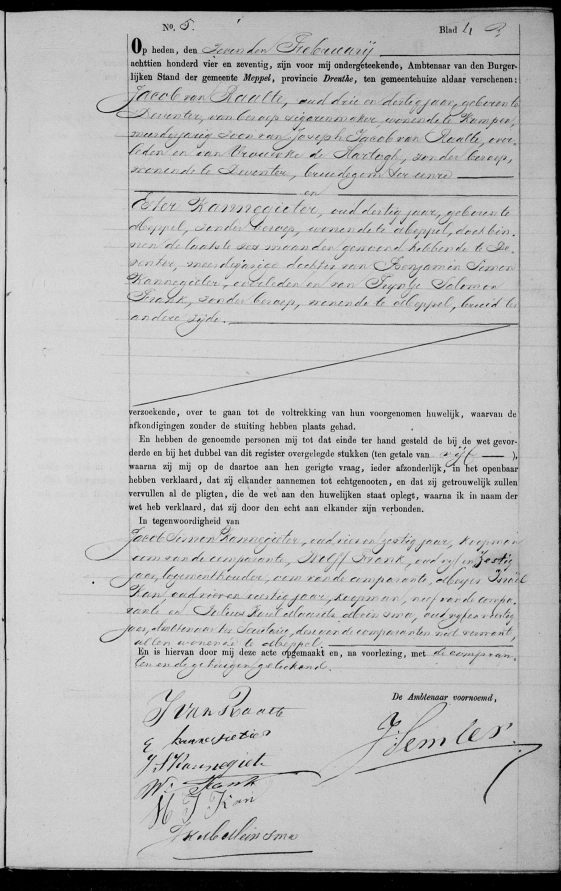 No. 5. Blad 4
Op heden, den zevenden Februarij
achttien honderd vier en zeventig, zijn voor mij ondergeteekende, Ambtenaar van den Burger-
lijken Stand der gemeente Meppel, provincie Drenthe, ten gemeentehuize aldaar verschenen:
Jacob van Raalte, oud drie en dertig jaar, geboren te
Deventer, van beroep sigarenmaker, wonende te Kampen,
meerderjarig zoon van Joseph Jacob van Raalte, over-
leden en van Vrouwke de Hartogh, zonder beroep,
wonende te Deventer, bruidegom ter eenre
en
Ester Kannegieter, oud dertig jaar, geboren te
Meppel, zonder beroep, wonende te Meppel, doch bin-
nen de laatste zes maanden gewoond hebbende te De-
venter, meerderjarige dochter van Benjamin Simon
Kannegieter, overleden en van Frank, zonder beroep, wonende te Meppel, bruid ter
andere zijde.
verzoekende, over te gaan tot de voltrekking van hun voorgenomen huwelijk, waarvan de
afkondigingen zonder de stuiting hebben plaats gehad.
En hebben de genoemde personen mij tot dat einde ter hand gesteld de bij de wet gevor-
derde en bij het dubbel van dit register overgelegde stukken (ten getale van vijf ),
waarna zij mij op de daartoe aan hen gerigte vraag, ieder afzonderlijk, in het openbaar
hebben verklaard, dat zij elkander aannemen tot echtgenooten, en dat zij getrouwelijk zullen
vervullen al de pligten, die de wet aan den huwelijken staat oplegt, waarna ik in naam der
wet heb verklaard, dat zij door den echt aan elkander zijn verbonden.
In tegenwoordigheid van
Jacob Simon Kannegieter, oud vier en zestig jaar, koopman
oom van de comparante, Wolff Frank, oud vijf en zestig
jaar, logementhouder, oom van de comparante, Israël
Kan, oud vier en veertig jaar, koopman, neef van de compa-
rante en Meinsma, oud vijf en veertig
jaar, ambtenaar ter Secretarie, den van de comparanten niet verwant,
allen wonende te Meppel.
En is hiervan door mij deze acte opgemaakt en, na voorlezing, met de comparan-
ten en de getuigen geteekend.
De Ambtenaar voornoemd,
J van Raalte
E kannegieter
J S Kannegieter
W. Frank
J. Semler
Kan
Meinsma